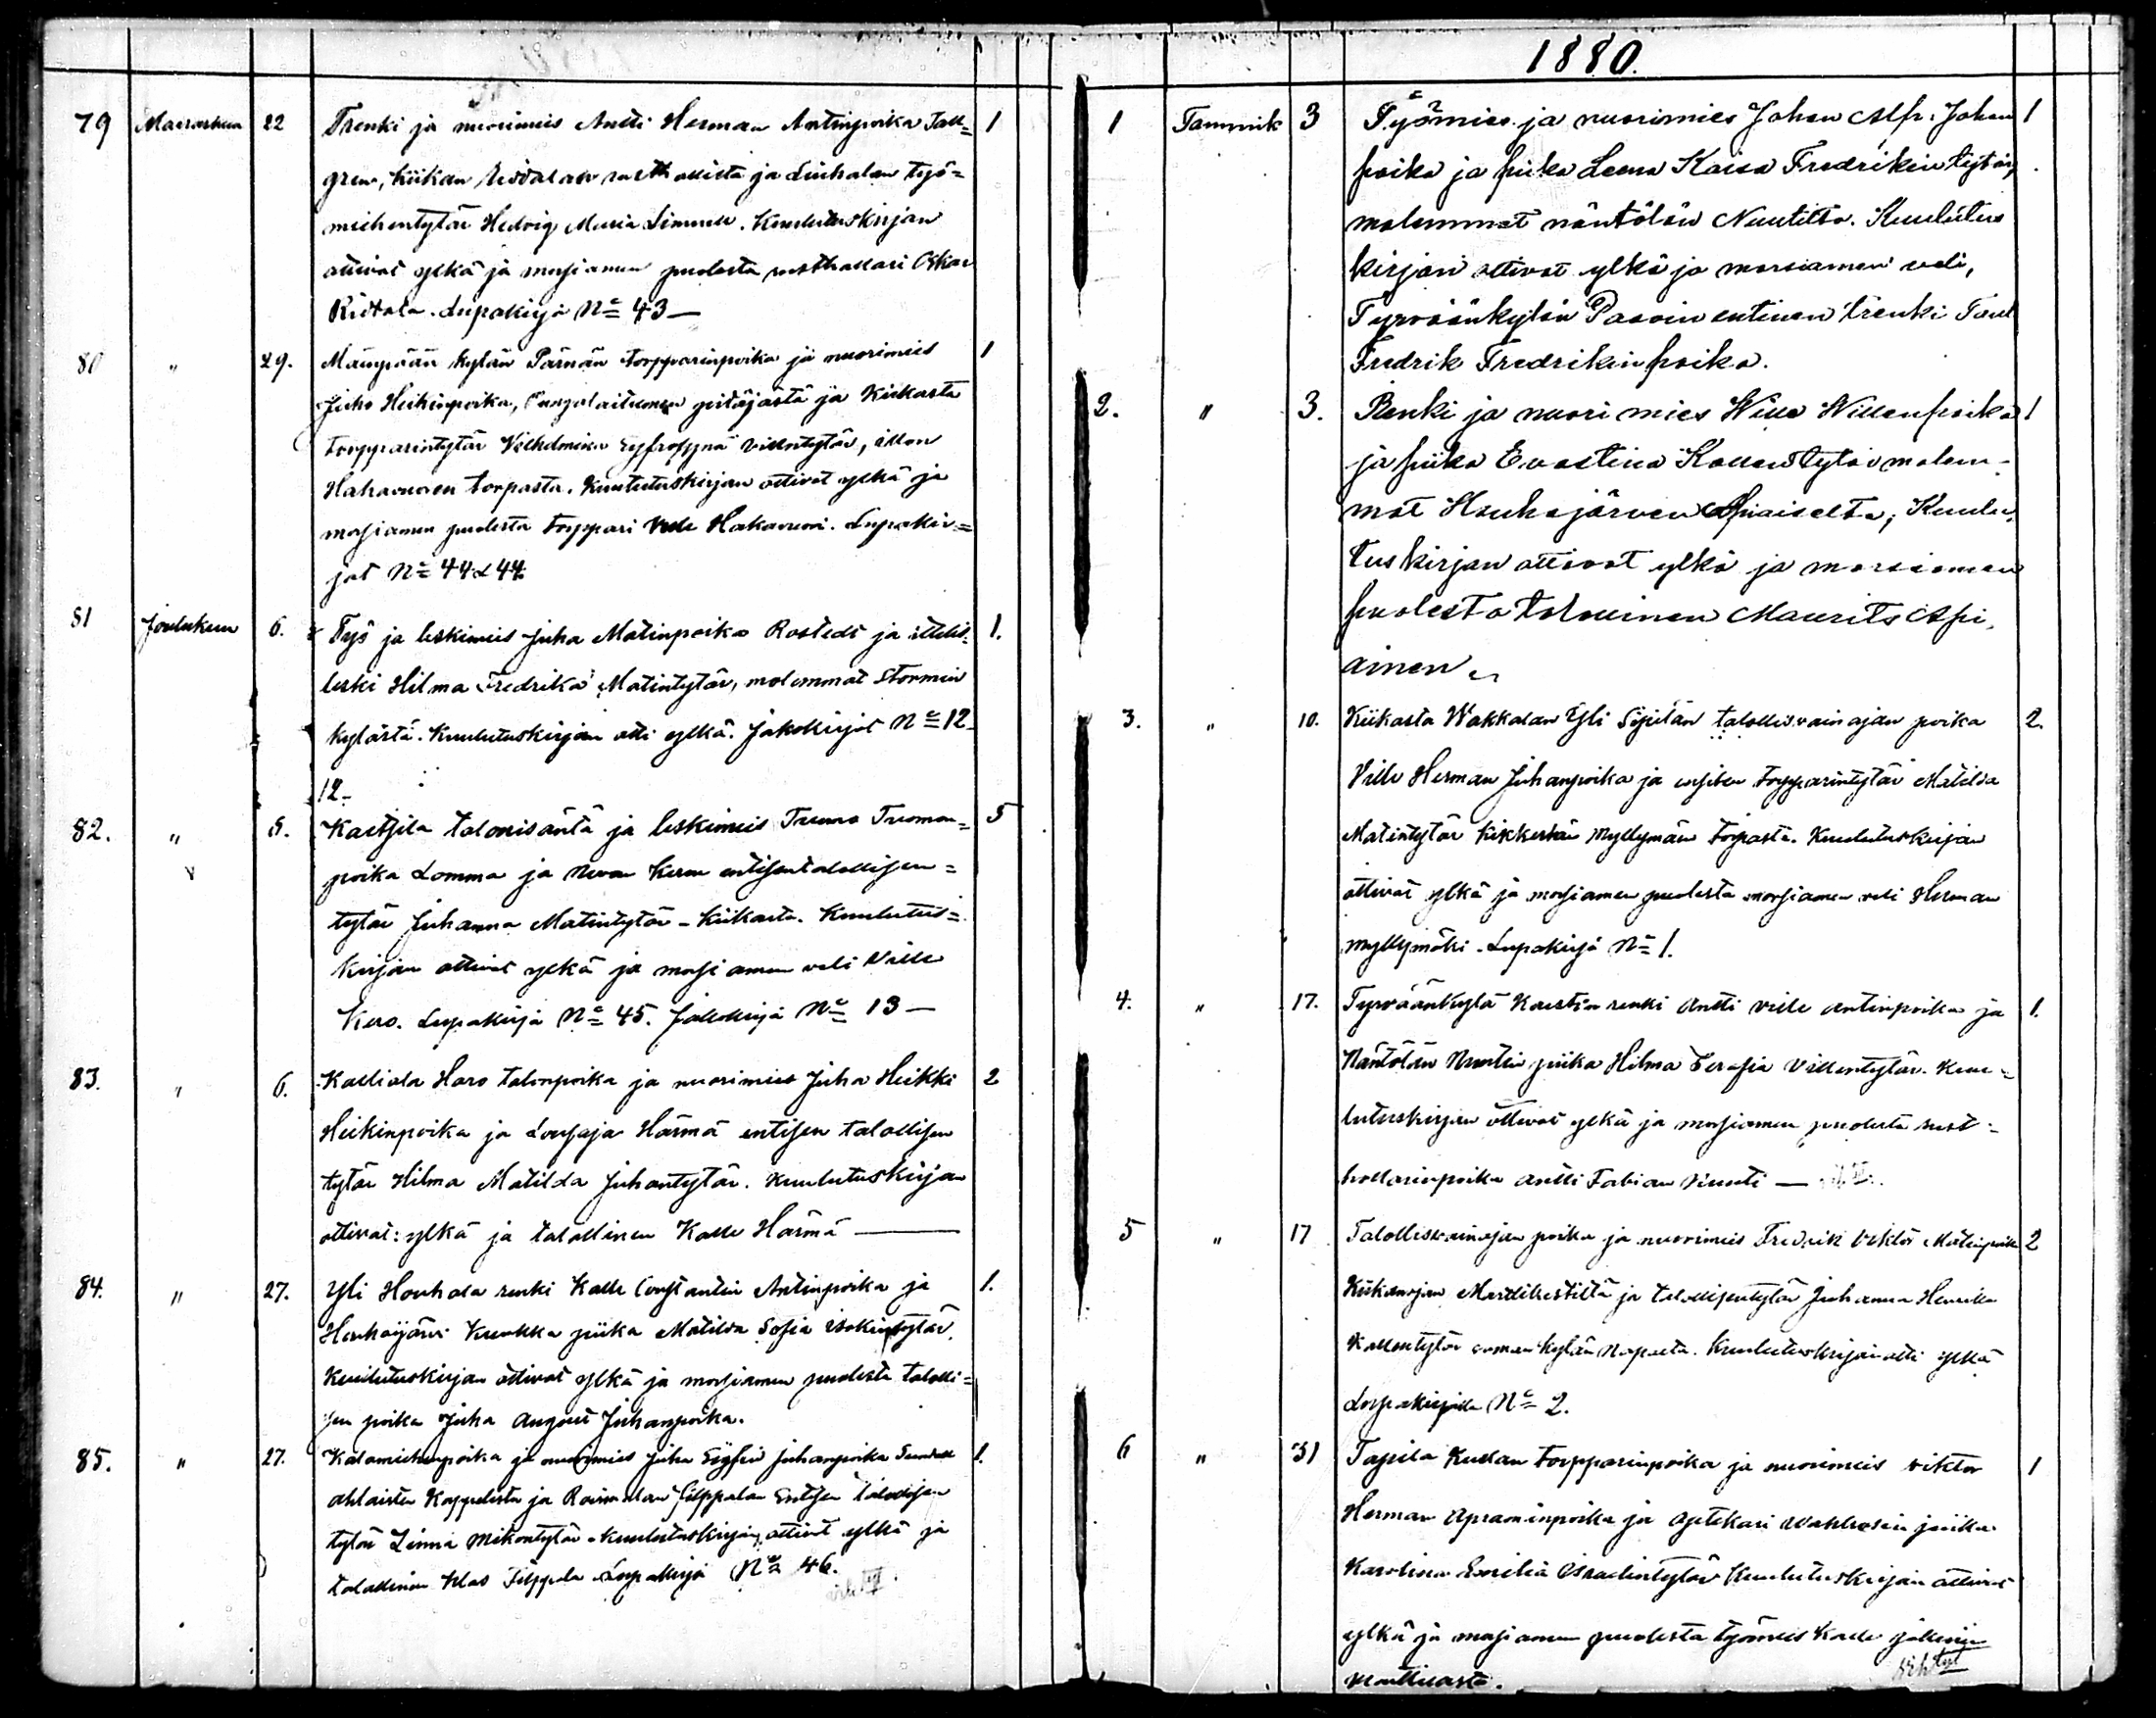 79 Marraskuu 22 Trenki ja nuorimies Antti Herman Antinpoika Tall= 1
gren, Kiikan Ridalan rusthollista ja Liuhalan työ=
miehentytär Hedvig Maria Simunt. Kuulutuskirjan
ottivat ylkä ja morsiamen puolesta rusthollari Oskar
Ridala. Lupakirja No 43 —
80 " 29. Maunpään kylän Pärnän torpparinpoika ja nuorimies 1
Juho Heikinpoika, Pungalaitumen pitäjästä ja Kiikasta
torpparintytär Vilhelmiina Eufrosyna Villentytär, Illon
Hakavuoren torpasta. Kuulutuskirjan ottivat ylkä ja
morsiamen puolesta torppari Ville Hakavuori. Lupakir=
jat No 44 & 44.
81 Joulukuu 6. Työ ja leskimies Juha Matinpoika Rostedt ja ittellis= 1.
leski Hilma Fredrika Matintytär, molemmat Stormin
kylästä. Kuulutuskirjan otti ylkä. Jakokirjat No 12_
12_
82. " 5. Kaltsila talonisäntä ja leskimies Tuomo Tuoman= 5
poika Lomma ja Keron entisen talollisen=
tytär Juhanna Matintytär - Kiikasta. Kuulutus=
kirjan ottivat ylkä ja morsiamen veli Ville
Kero. Lupakirja No 45. Jakokirja No 13 —
83. " 6. Kalliala Haro talonpoika ja nuorimies Juha Heikki 2
Heikinpoika ja Lousaja Härmä entisen talollisen
tytär Hilma Matilda Juhantytär. Kuulutuskirjan
ottivat: ylkä ja talollinen Kalle Härmä —
84. " 27. Yli Houhala renki Kalle Constantin Antinpoika ja 1.
Houhaijärvi Kuukka piika Matilda Sofia Isakintytär.
Kuulutuskirjan ottivat ylkä ja morsiamen puolesta talolli=
sen poika Juha August Juhanpoika.
85. " 27. Kalamiehenpoika ja nuorimies Juha Sigfrid Juhanpoika 1.
Ahlaisten Kappelista ja Roismalan Filppulan Entisen talollisen
tytär Linna Mikontytär. Kuulutuskirjan ottivat ylkä ja
talollinen Klas Filppula. Lupakirja No 46.
1880.
1 Tammik 3 Työmies ja nuorimies Johan Alfr. Johan 1
poika ja piika Leena Kaisa Fredrikin tytär,
molemmat näntölän Nuutilta. Kuulutus
kirjan ottivat ylkä ja morsiamen veli,
Tyrväänkylän Paavin entinen trenki
Fredrik Fredrikin poika.
2. " 3. Renki ja nuori mies Wille Willenpoika 1
ja piika Evastina Kallentytär molem-
mat Houhajärven Apiaiselta; Kuulu,
tus kirjan ottivat ylkä ja morsiamen
puolesta talollinen Maurits Api,
ainen
3. " 10. Kiikasta Wakkalan Yli Sipilän talollisvainajan poika 2.
Ville Herman Juhanpoika ja torpparintytär Matilda
Matintytär Kikkerlän Myllymäen torpasta. Kuulutuskirjan
ottivat ylkä ja morsiamen puolesta morsiamen veli Herman
Myllymäki. Lupakirja No 1.
4. " 17. Tyrväänkylä Kaustin renki Antti Ville Antinpoika ja 1.
Näntölän Nuutin piika Hilma Serafia Villentytär. Kuu=
lutuskirjan ottivat ylkä ja morsiamen puolesta rust=
hollarinpoika Antti Fabian Nuuti —
5 " 17 Talollisvainajan poika ja nuorimies Fredrik Viktor Matinpoika 2
Kiikanojan Marttilestiltä ja talollisentytär Juhanna Henrika
Kallentytär saman kylän. Kuulutuskirjan otti ylkä
Lupakirjalla No 2.
6 " 31 Tapila Kullan torpparinpoika ja nuorimies Viktor 1
Herman Apraminpoika ja Aptekari Wahlrosin piika
Karolina Emilia Israelintytär Kuulutuskirjan ottivat
ylkä ja morsiamen puolesta työmies Kalle